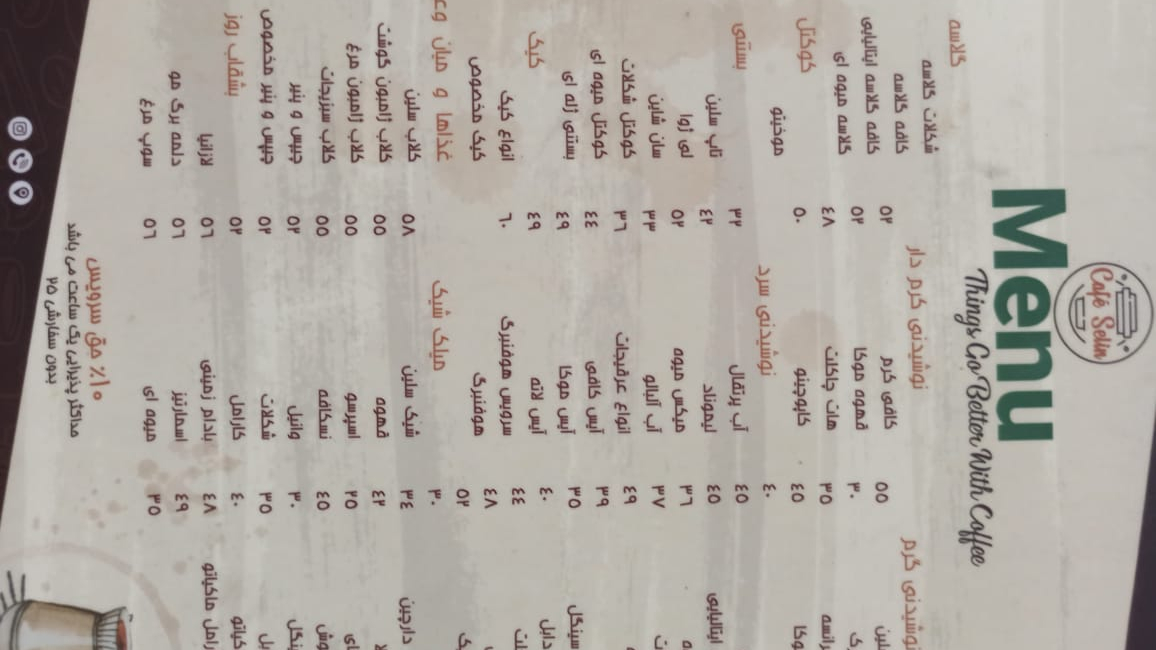 Café Selin
Menu
Things Go Better With Coffee
گلاسه
شکلات گلاسه
کافه گلاسه ۵۲
کافه گلاسه ایتالیایی ۵۲
گلاسه میوه ای ۴۸
کوکتل
موخیتو ۵۰
بستنی
تاپ سلین ۳۲
لی ژوا ۴۲
سان شاین ۵۲
کوکتل شکلات ۳۳
کوکتل میوه ای ۳۶
بستنی ژله ای ۴۴
کیک ۴۹
انواع کیک ۴۹
کیک مخصوص ۶۰
غذاها و میان وع
کلاب سلین ۵۸
کلاب ژامبون گوشت ۵۵
کلاب ژامبون مرغ ۵۵
کلاب سبزیجات ۵۵
چیپس و پنیر ۵۲
چیپس و پنیر مخصوص ۵۲
بشقاب روز ۵۲
لازانیا ۵۶
دلمه برگ مو ۵۶
سوپ مرغ ۵۶
نوشیدنی گرم دار
کافی کرم ۵۵
قهوه موکا ۳۰
هات چاکلت ۳۵
کاپوچینو ۴۵
نوشیدنی سرد ۴۰
آب پرتقال ۴۵
لیموناد ۴۵
میکس میوه ۳۶
آب آلبالو ۳۷
انواع عرقیجات ۴۹
آیس کافی ۳۹
آیس موکا ۳۵
آیس لاته ۴۰
سرویس هوفنبرگ ۴۴
هوفنبرگ ۴۸
۵۲
میلک شیک ۳۰
شیک سلین ۳۴
قهوه ۴۲
اسپرسو ۲۵
نسکافه ۴۵
وانیل ۳۰
شکلات ۳۵
کارامل ۴۰
بادام زمینی ۴۸
اسمارتیز ۴۹
میوه ای ۳۵
نوشیدنی گرم
ایتالیایی
سینگل
دابل
دارچین
۱۰٪ حق سرویس
حداکثر پذیرایی یک ساعت می باشد
بدون سفارش ۲۵